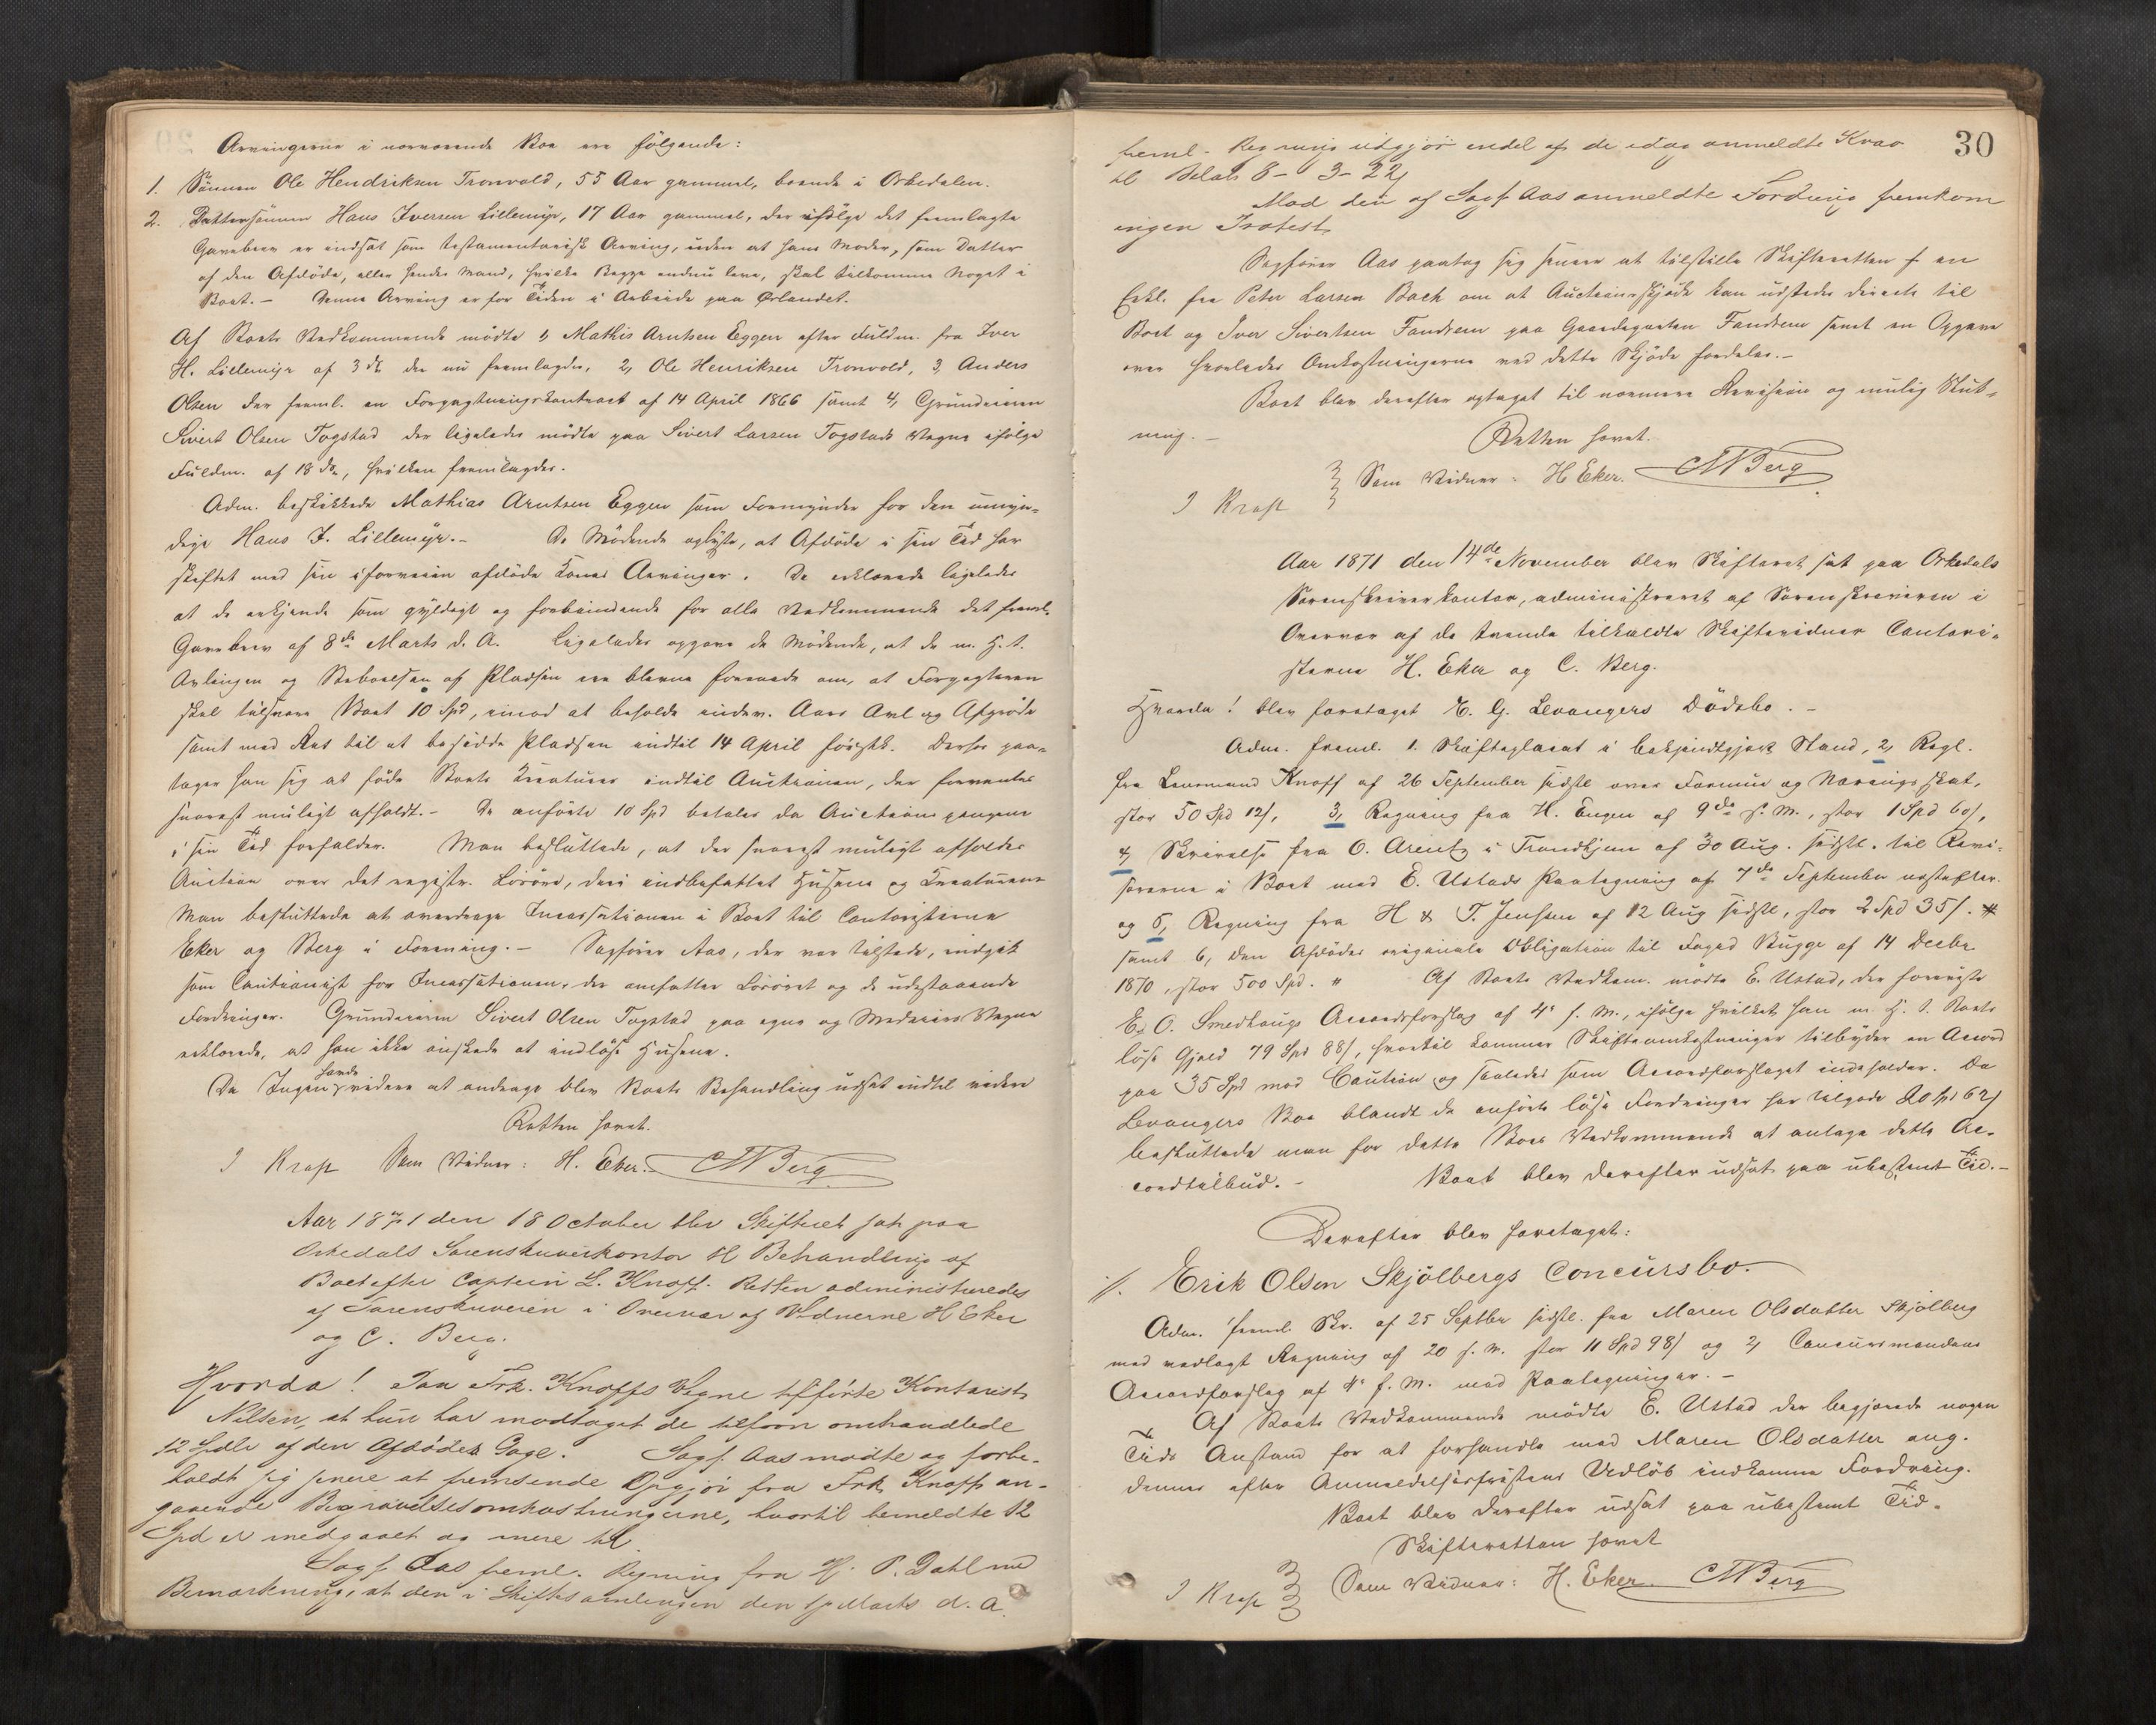 Arvingerne i nærværende Bo ere følgende:
1. Sönnen Ole Hendriksen Tronvold, 55 Aar gammel, boende i Orkedalen.
2. Dattersönnen Hans Iversen Lillemyr, 17 Aar gammel, der ifölge det fremlagte
Gavebrev er indsat som testamentarisk Arving, uden at hans Moder, som Datter
af den Afdöde, eller hendes Mand, hvilke Begge endnu leve, skal tilkomme Noget i
Boet. – Denne Arving er for Tiden i Arbeide paa Ørlandet.
Af Boets Vedkommende mödte 1, Mathis Arntsen Eggen efter Fuldm. fra Iver
H. Lillemyr af 3 ds der nu fremlagdes, 2, Ole Henriksen Tronvold, 3, Anders
Olsen der freml. en Forpagtningskontract af 14 April 1866 samt 4, Grundeieren
Sivert Olsen Togstad der ligeledes mödte paa Sivert Larsen Togstads Vegne ifölge
Fuldm. af 18 ds, hvilken fremlagdes.
Adm. beskikkede Mathias Arntsen Eggen som Formynder for den umyn-
dige Hans I. Lillemyr. – De Mödende oplyste, at Afdöde i sin Tid har
skiftet med sin i forveien afdöde Kones Arvinger. De erklærede ligeledes
at de erkjende som gyldigt og forbindende for alle Vedkommende det freml.
Gavebrev af 8de Marts d. A. Ligeledes opgave de Mödende, at de m. H. t.
Avlingen og Beboelsen af Pladsen ere blevne forenede om, at Forpagteren
skal tilsvare Boet 10 Spd, imod at beholde indev. Aars Avl og Afgröde
samt med Ret til at besidde Pladsen indtil 14 April förstk. Derhos paa-
tager han sig at föde Boets Kreaturer indtil Auctionen, der forventes
snarest muligt afholdt. – De anförte 10 Spd betales da Auctionspengene
i sin Tid forfalder. Man besluttede, at der snarest muligt afholdes
Auction over det registr. Lösöre, deri indbefattet Husene og Kreaturene
Man besluttede at overdrage Incassationen i Boet til Contoristerne
Eker og Berg i Forening. – Sagförer Aas, der var tilstede, indgik
som Cautionist for Incassationen, der omfatter Lösöret og de udestaaende
Fordringer. Grundeieren Sivert Olsen Togstad paa egne og Medeiers Vegne
erklærede, at han ikke önskede at indlöse Husene.
Da Ingen havde videre at andrage blev Boets Behandling udsat indtil videre
Retten hævet.
I Krop Som Vidner: H. Eker. CMBerg
Aar 1871 den 18 October blev Skifteret sat paa
Orkedals Sorenskriverkontor til Behandling af
Boet efter Captein L. Knoff. Retten administreredes
af Sorenskriveren i Overvær af Vidnerne H Eker
og C. Berg.
Hvorda! Paa Frk. Knoffs Vegne tilförte Kontorist
Nilsen, at hun har modtaget de tilforn omhandlede
12 Spdlr af den Afdödes Gage. Sagf. Aas mödte og forbe-
holdt sig senere at fremsende Opgjör fra Frk. Knoff an-
gaaende Begravelsesomkostningerne, hvortil bemeldte 12
Spd er medgaaet og mere til.
Sagf. Aas freml. Regning fra H. P. Dahl med
Bemærkning, at den i Skiftesamlingen den Marts d. A.
30
freml. Regning udgjör endel af de idag anmeldte Krav
til Beløb 8 – 3 – 22/
Mod den af Sagf. Aas anmeldte Fordring fremkom
ingen Protest.
Sagförer Aas paatog sig senere at tilstille Skifteretten en
Erkl. fra Peter Larsen Bach om at Auctionsskjöde kan udstedes directe til
Boet og Iver Sivertsen Fandrem paa Gaardeparten Fandrem samt en Opgave
over hvorledes Omkostningerne ved dette Skjöde fordeles. –
Boet blev derefter optaget til nærmere Revision og mulig Slut-
ning. –
Retten hævet.
I Krop Som Vidner: H Eker. CMBerg
Aar 1871 den 14de November blev Skifteret sat paa Orkedals
Sorenskriverkontor, administreret af Sorenskriveren i
Overvær af de tvende tilkaldte Skiftevidner Contori-
sterne H. Eker og C. Berg.
Hvorda! blev foretaget E. G. Levangers Dödsbo. –
Adm. freml. 1. Skifteplacat i bekjendtgjort Stand, 2, Regl.
fra Lensmand Knoff af 26 September sidstl over Formue og Næringsskat,
stor 50 Spd 12/, 3, Regning fra H. Engen af 9de f. M., stor 1 Spd 60/,
4, Skrivelse fra O. Arentz i Trondhjem af 30 Aug. sidstl. til Kurri-
sorerne i Boet med E. Ustads Paategning af 7de September næstefter.
og 5, Regning fra H & T. Jenssen af 12 Aug sidstl, stor 2 Spd 35/.
samt 6, den Afdödes originale Obligation til Foged Bugge af 14 Decbr
1870, stor 500 Spd. " Af Boets Vedkom. mödte E. Ustad, der foreviste
E. O. Smedhaugs Accordsforslag af 4de f. M., ifölge hvilket han m. H. t. Boets
löse Gjæld 79 Spd 88/, hvortil kommer Skifteomkostninger tilbyder en Accord
paa 35 Spd mod Caution og saaledes som Accordforslaget indeholder. Da
Levangers Bo blandt de anförte löse Fordringer har tilgode 20 sp 62/
besluttede man for dette Boes Vedkommende at antage dette Ac-
cordtilbud. – Boet blev derefter udsat paa ubestemt Tid. –
Derefter blev foretaget:
Erik Olsen Skjölbergs Concursbo.
Adm. freml. Skr. af 25 Septbr sidstl. fra Maren Olsdatter Skjölberg
med vedlagt Regning af 20 s. M. stor 11 Spd 98/ og 2, Concursmandens
Accordforslag af 4de f. M. med Paategninger. –
Af Boets Vedkommende mödte E. Ustad der begjærede nogen
Tids Anstand for at forhandle med Maren Olsdatter ang.
dennes efter Anmeldelsesfristens Udlöb indkomne Fordring.
Boet blev derefter udsat paa ubestemt Tid.
Skifteretten hævet
I Krop Som Vidner: H. Eker CMBerg